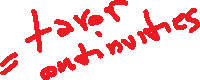 = favor
continuities